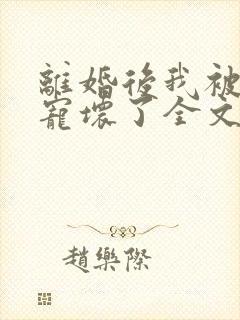 離婚後我被
寵壞了全文
趙樂際